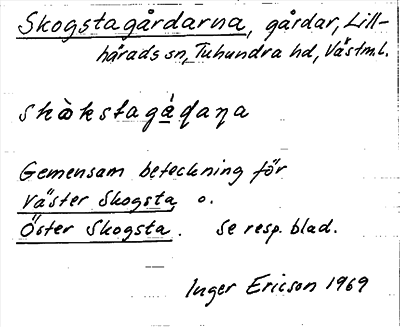 Skogstagårdarna, gårdar, Lill-
härads sn, Tuhundra hd, Västml.
skὰkstagá̱ɖaṇa
Gemensam beteckning för
Väster Skogsta o.
Öster Skogsta. Se resp. blad.
Inger Ericson 1969